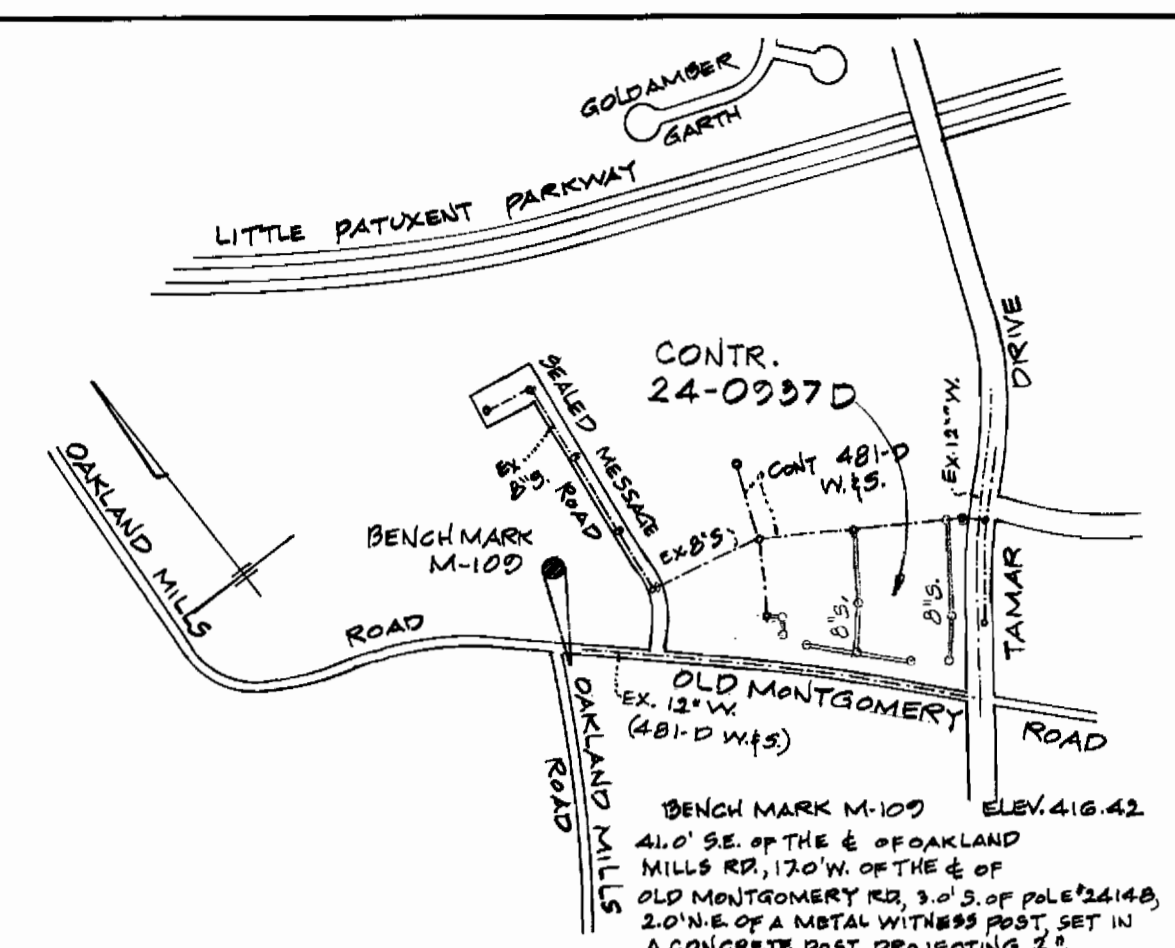 GOLDAMBER
GARTH
LITTLE PATUXENT PARKWAY
DRIVE
CONTR.
24-0937D
SEALED MESSAGE
ROAD
EX
8"S.
EX. 12" W.
CONT 481-D
W.&S.
OAKLAND MILLS
ROAD
BENCH MARK
M-109
EX 8"S
8"S.
8"S.
TAMAR
OLD MONTGOMERY
ROAD
EX. 12" W.
(481-D W.&S.)
OAKLAND MILLS
ROAD
BENCH MARK M-109 ELEV. 416.42
41.0' S.E. OF THE ℄ OF OAKLAND
MILLS RD., 17.0' W. OF THE ℄ OF
OLD MONTGOMERY RD., 3.0' S. OF POLE #24148,
2.0' N.E. OF A METAL WITNESS POST, SET IN
A CONCRETE POST PROJECTING 2"